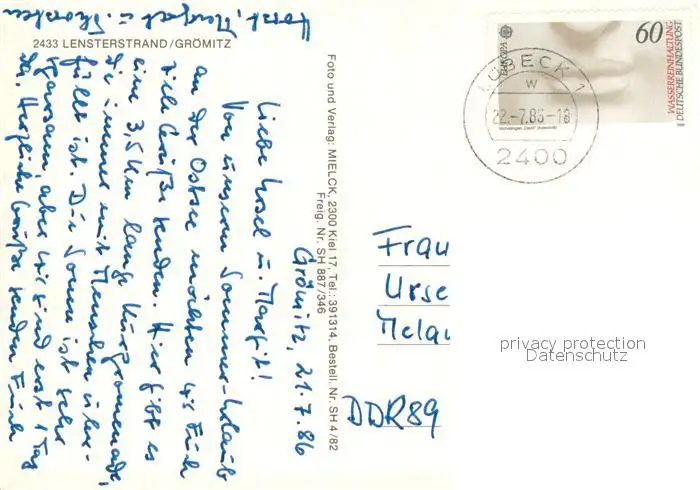 2433 LENSTERSTRAND/GRÖMITZ
Grömitz, 21.7.86
Liebe Ursel u. Margit!
Von unserem Sommer-Urlaub
an der Ostsee möchten wir Euch
viele Grüße senden. Hier gibt es
eine 3,5 km lange Kurpromenade,
die immer mit Menschen über-
füllt ist. Die Sonne ist sehr
sparsam, aber wir sind erst 1 Tag
da. Herzliche Grüße senden Euch
Horst, u. Thorsten
Foto und Verlag: MIELCK, 2300 Kiel 17, Tel.: 391314, Bestell. Nr. SH 4/82
Freig. Nr. SH 887/346
EUROPA
60
WASSERREINHALTUNG
DEUTSCHE BUNDESPOST
LÜBECK 1
w
22.-7.86-18
2400
Frau
Urse
Melau
DDR 89
privacy protection
Datenschutz